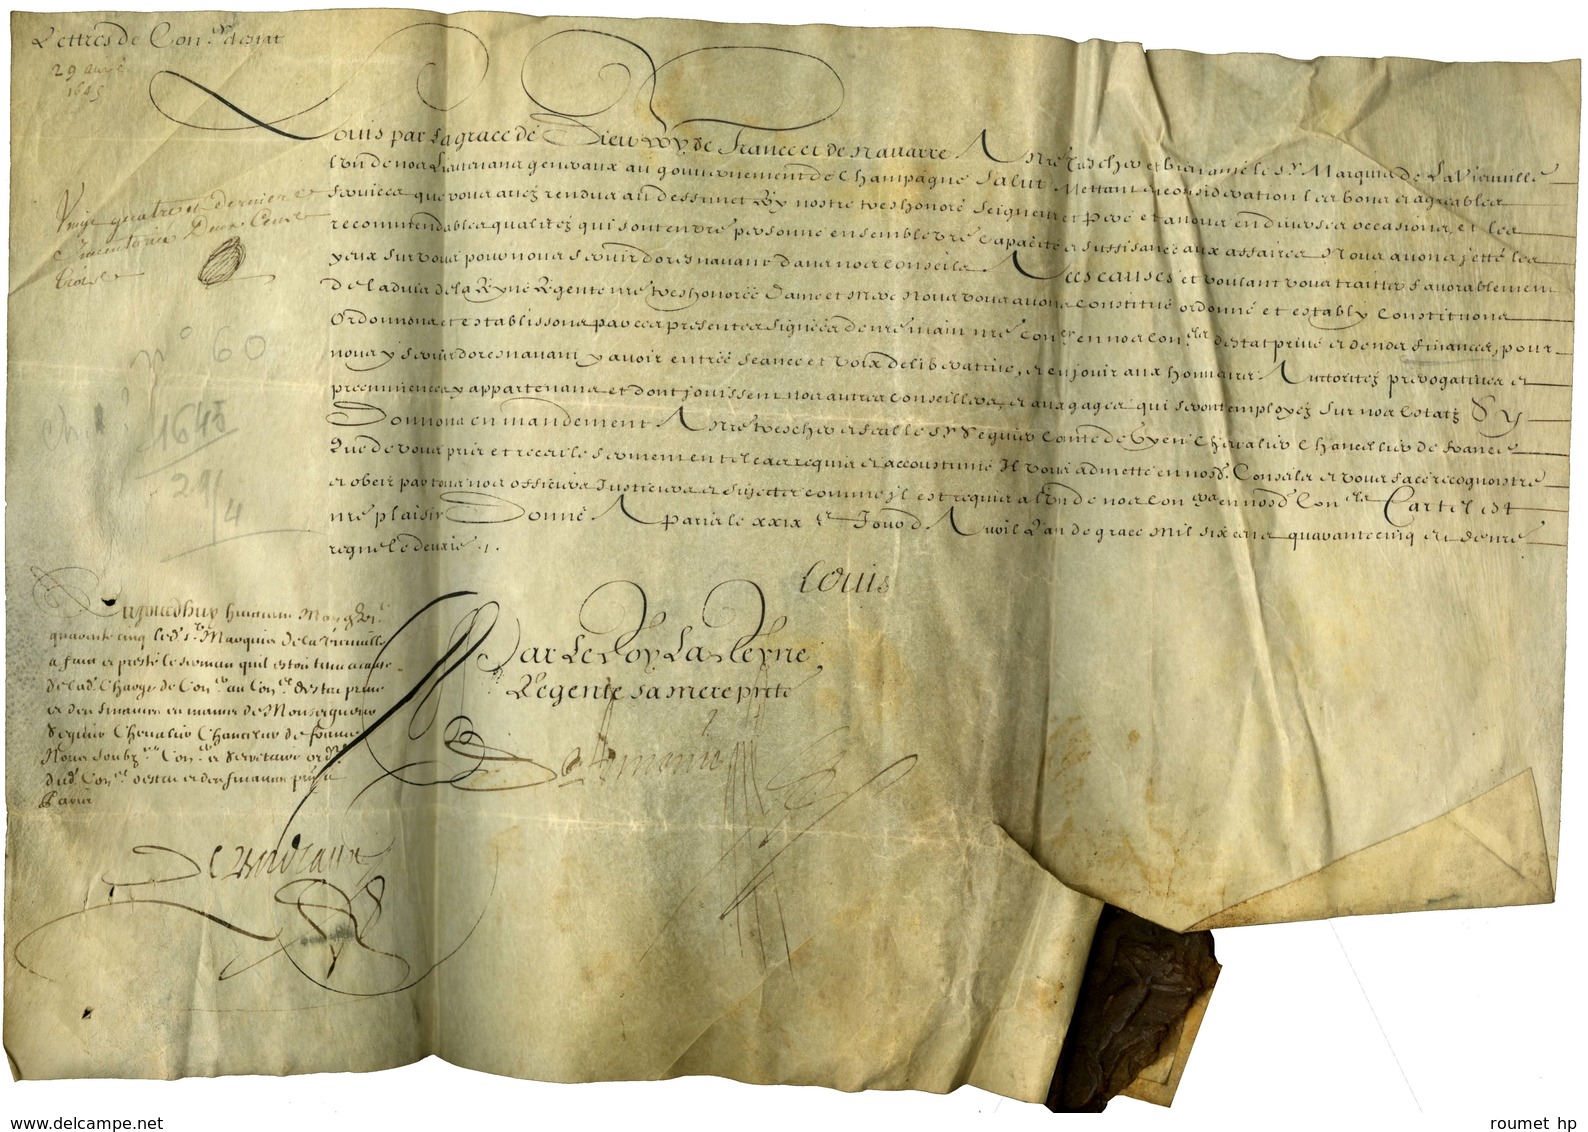 Lettres de Con.er destat
29 auril
1645
Louis par La grace de Dieu Roy de France et de Nauarre A Nostre tres cher et bien amé le Sr Marquis de La Vieuuille
L'un de nos Lieutenans generaux au gouuernement de Champagne Salut Mettant en consideration les bons et agreables
seruices que vous auez rendus au deffunct Roy nostre tres honoré Seigneur et Pere et a nous en diuerses occasions, et les
recommendables qualitez qui sont en vre personne ensemble vre capacité et suffisance aux affaires Nous auons jetté les
yeux sur vous pour nous seruir doresnauant dans nos conseils A Ces causes et voulant vous traitter fauorablement
De l'aduis de la Reyne Regente nre tres honorée Dame et Mere Nous vous auons constitué ordonné et estably Constituons
Ordonnons et establissons par ces presentes signées de nre main nre Con.er en nos Con.els destat priué et de nos finances, pour
nous y seruir doresnauant y auoir entrée seance et voix deliberatiue, et en jouir aux honneurs Auctoritez prerogatiues et
preeminences y appartenans et dont jouissent nos autres Conseillers, et aux gages qui seront employez sur nos Estatz Sy
Donnons en mandement A Nostre tres cher et feal le Sr Seguier Comte de Gyen Cheualier Chancellier de France
Que de vous pris et receu le serment en tel cas requis et accoustumé Il vous admette en nosd. Conseils et vous face recognoistre
et obeir par tous nos officiers Justiciers et sujects comme jl est requis a l'un de nos Con.ers en nosd. Con.els Car tel est
nre plaisir Donné A Paris le xxix e Jour d'Auril L'an de grace mil six cens quarante cinq et de nre
regne le deuxie.
Vingt quatre et derniere
Inuentoriée Deux Cent
trois
No 60
1645
29/4
Louis
Par Le Roy La Reyne
Regente sa mere pnte
Aujourdhuy huictieme May gbi.c
quarente cinq led. Sr Marquis de la Vieuuille
a faict et presté le serment quil estoit tenu a cause
de lad. Charge de Con.er au Con.el destat priué
et des finances en mains de Monseigneur
Seguier Cheualier Chancelier de france
Nous soubz.ne Con.er et Secretaire ord.re
dud. Con.el destat et des finances pnt a
Paris
roumet hp
www.delcampe.net